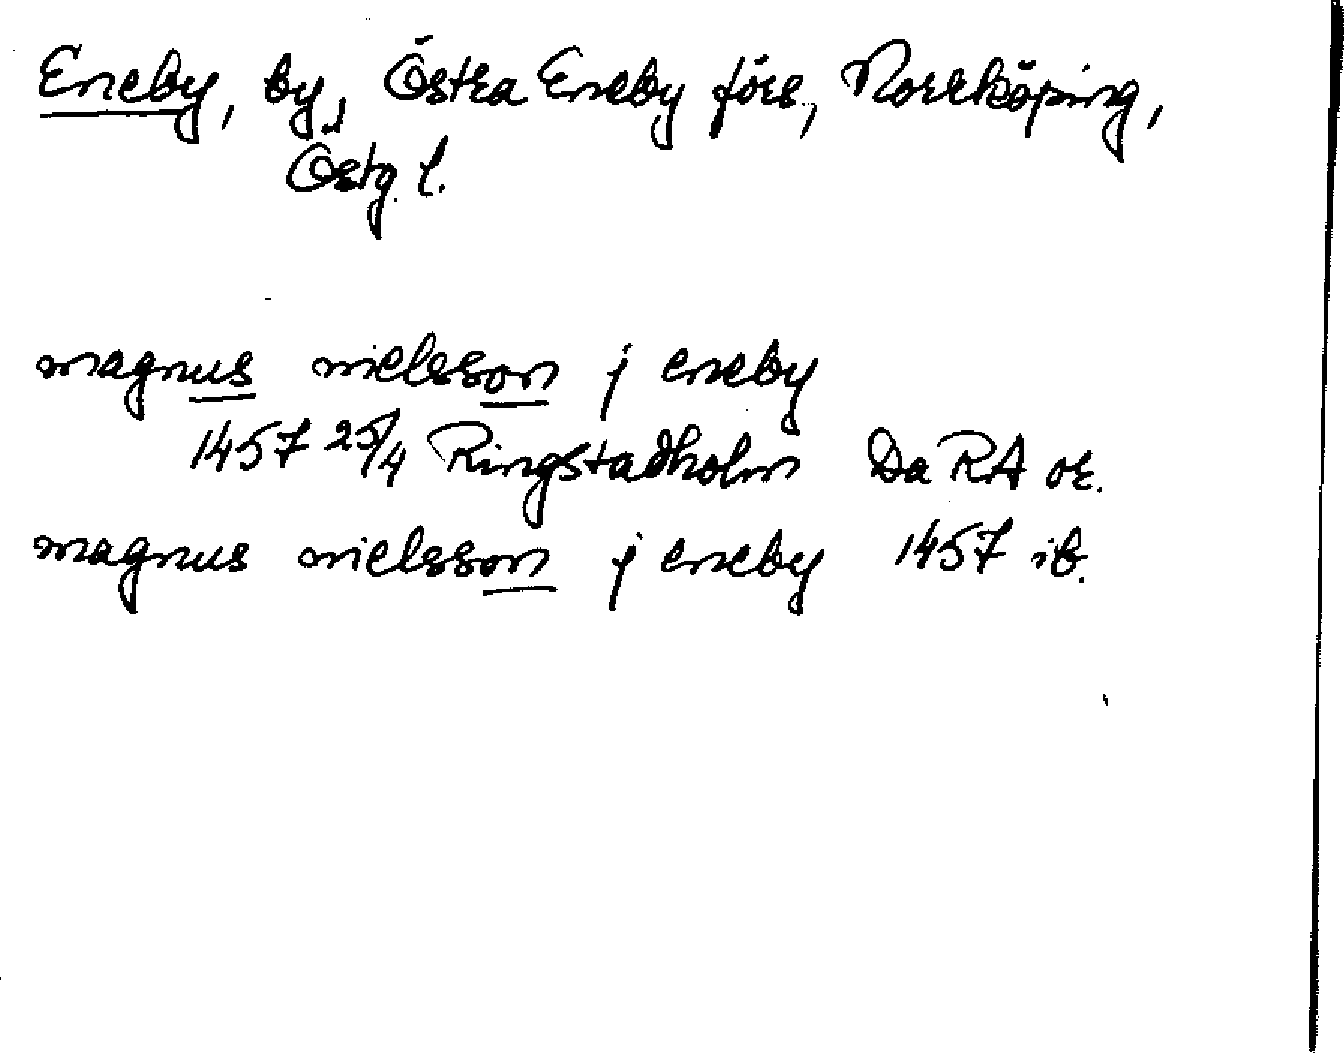 Eneby, by, Östra Eneby förs., Norrköping,
Östg. l.
magnus nielsson j eneby
1457 25/4 Ringstadholm Da RA or.
magnus nielsson j eneby 1457 ib.